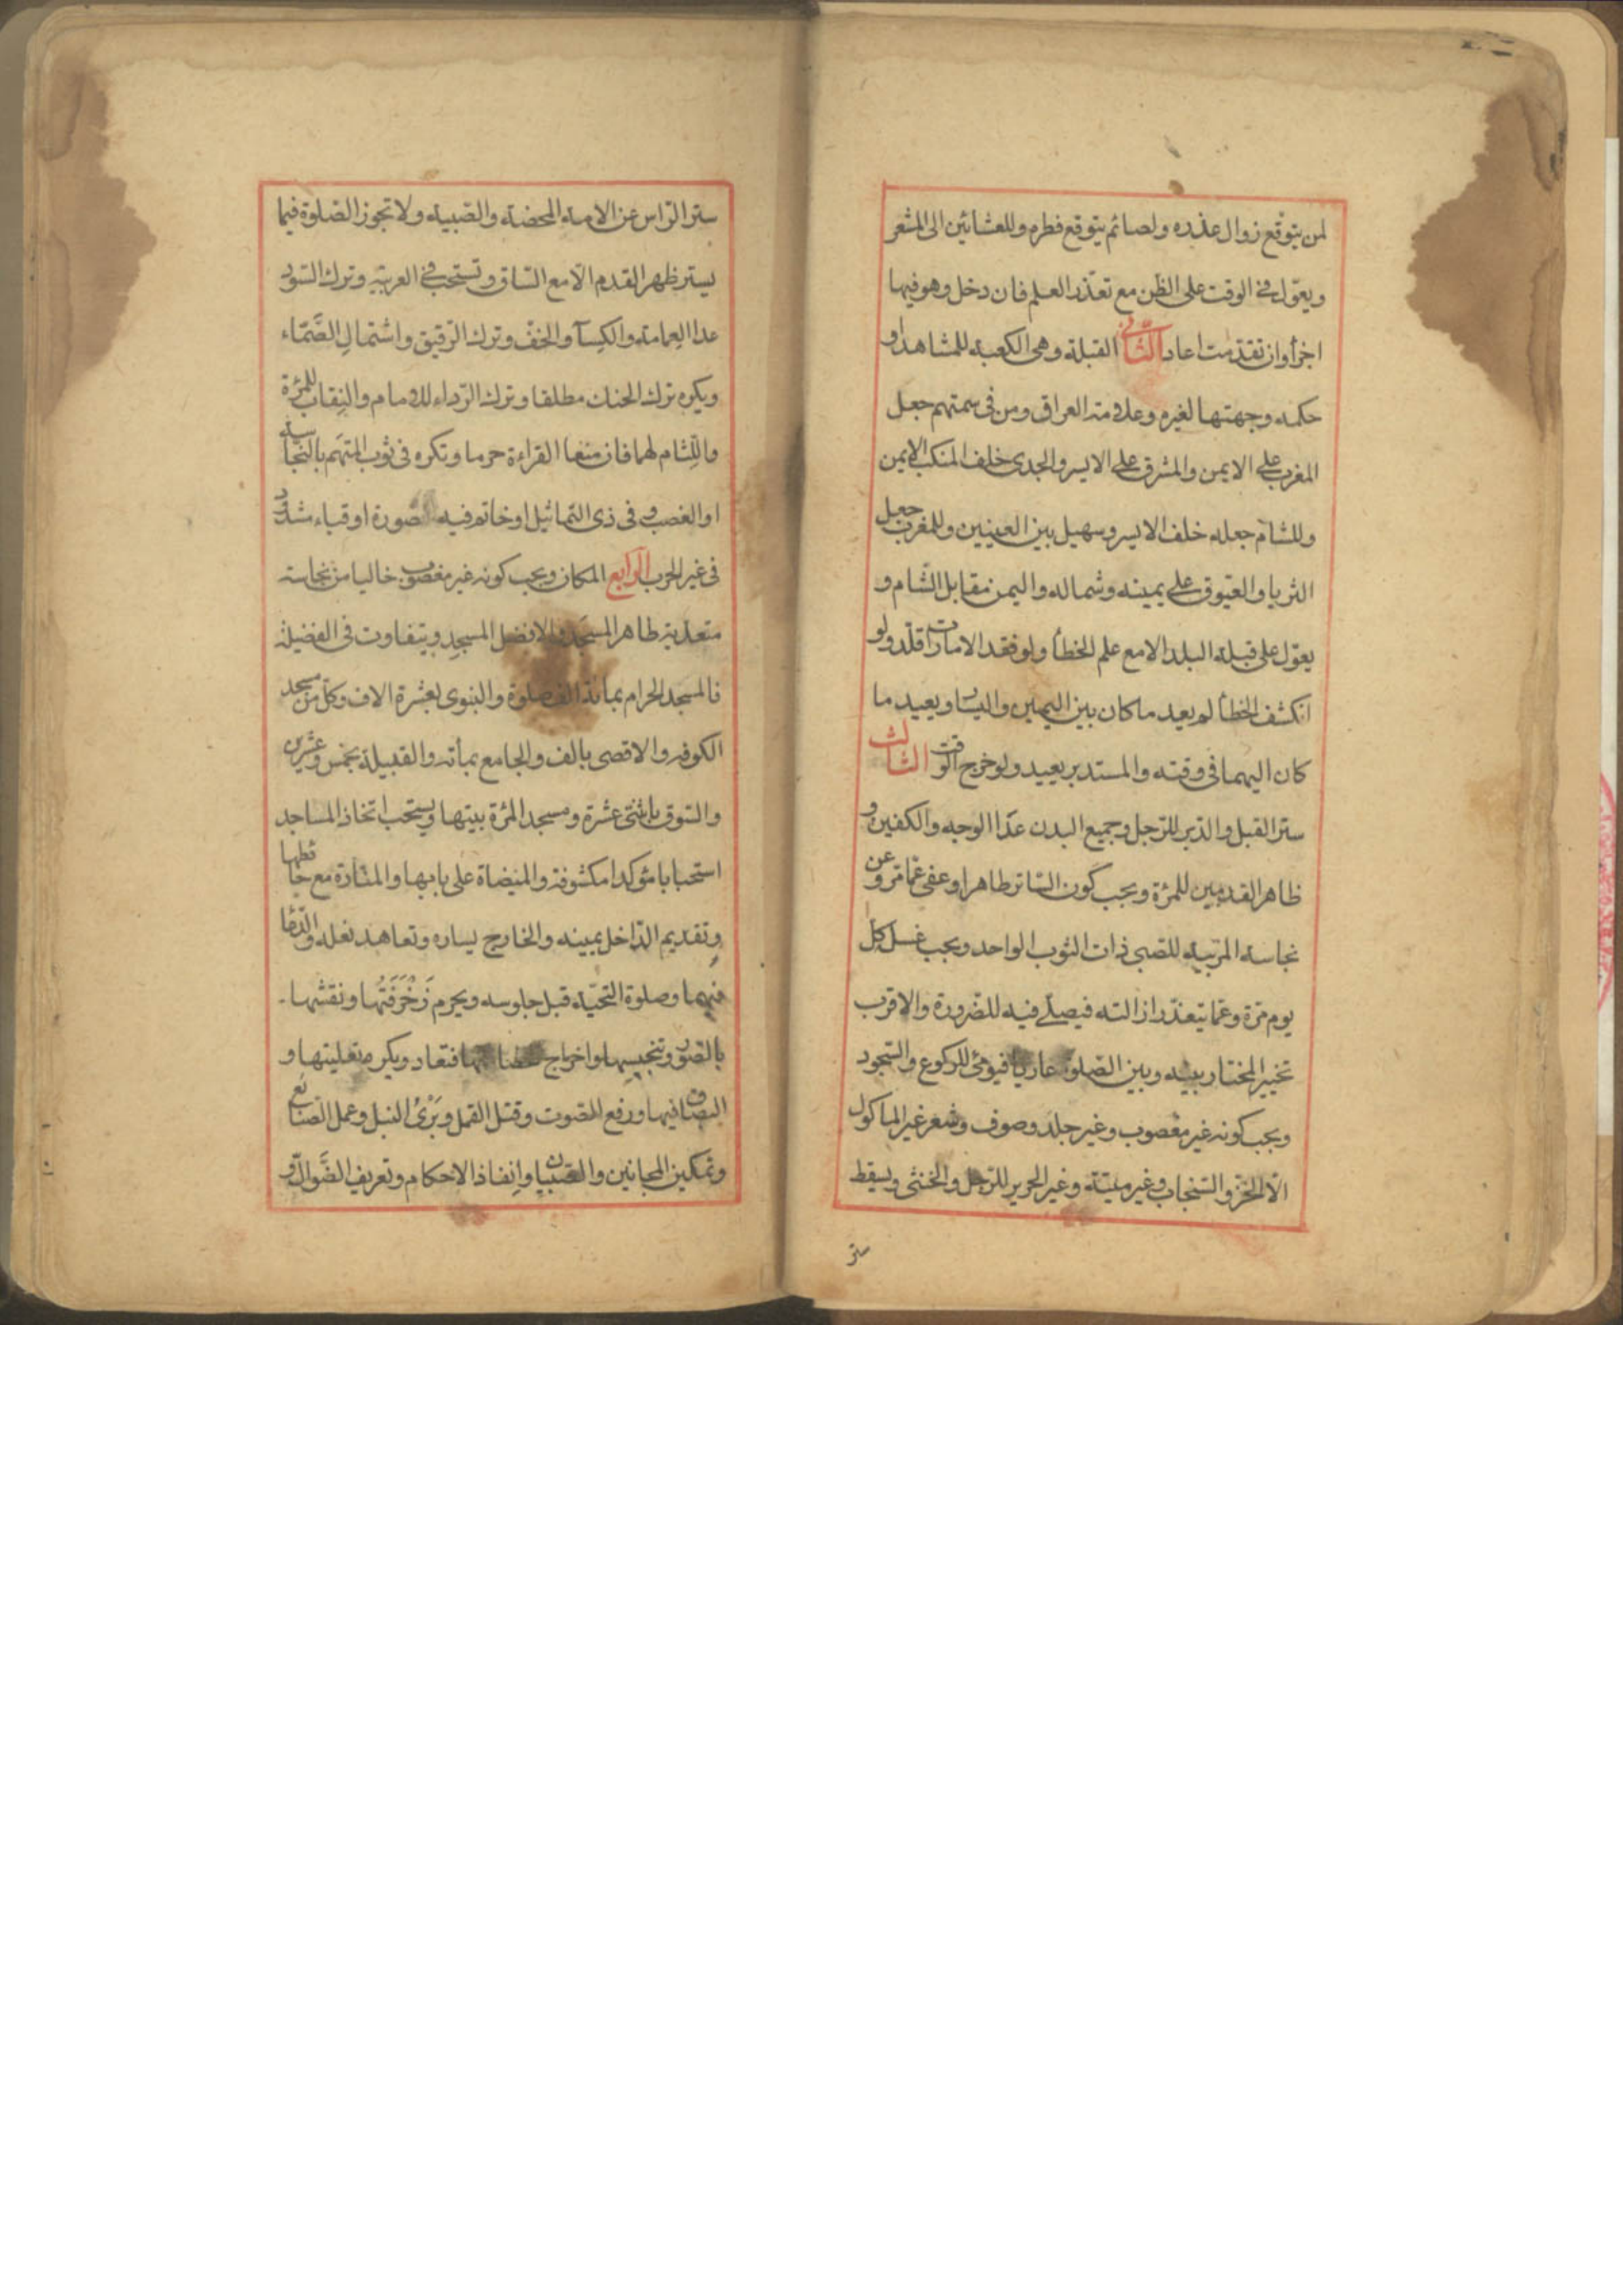 لمن يتوقع زوال عذره ولصائم يتوقع فطره وللعشائين الى المشعر
ويعوّل فى الوقت على الظن مع تعذّر العلم فان دخل وهو فيها
اجزأ وان تقدمت اعاد الثانى القبلة وهى الكعبة للمشاهد او
حكمه وجهتها لغيره وعلامة العراق ومن فى سمتهم جعل
المغرب على الايمن والمشرق على الايسر والجدى خلف المنكب الايمن
وللشام جعله خلف الايسر وسهيل بين العينين وللمغرب جعل
الثريا والعيوق على يمينه وشماله واليمن مقابل الشام و
يعوّل على قبلة البلد الا مع علم الخطأ ولو فقد الامارات قلّد ولو
انكشف الخطأ لم يعد ما كان بين اليمين واليسار ويعيد ما
كان اليهما فى وقته والمستدبر يعيد ولو خرج الوقت الثالث
ستر القبل والدبر للرجل وجميع البدن عدا الوجه والكفين و
ظاهر القدمين للمرئة ويجب كون الساتر طاهرا وعفى عما مر وعن
نجاسة المربية للصبى ذات الثوب الواحد ويجب غسل كل
يوم مرّة وعمّا يتعذّر ازالته فيصلّى فيه للضرورة والاقرب
تخيير المختار بينه وبين الصلوة عاريا فيومئ للركوع والسجود
ويجب كونه غير مغصوب وغير جلد وصوف وشعر غير المأكول
الّا الخزّ والسنجاب وغير ميتة وغير الحرير للرّجل والخنثى ويسقط
ستر
ستر الرّاس عن الامة المحضة والصّبية ولا تجوز الصّلوة فيما
يستر ظهر القدم الّا مع السّاق وتستحب فى العربيّة وترك السّود
عدا العمامة والكسآ والخفّ وترك الرّقيق واشتمال الصّمّاء
ويكره ترك الحنك مطلقا وترك الرّداء للامام والنقاب للمرئة
واللّثام لهما فان منعا القراءة حرما وتكره فى ثوب المتّهم بالنجاسة
او الغصب وفى ذى التماثيل او خاتم فيه صورة او قباء مشدود
فى غير الحرب الرابع المكان ويجب كونه غير مغصوب خاليا من نجاسة
متعدية طاهر المسجد والافضل المسجد ويتفاوت فى الفضيلة
فالمسجد الحرام بمائة الف صلوة والنبوى بعشرة الاف وكلّ من مسجد
الكوفة والاقصى بالف والجامع بمأة والقبيلة بخمس وعشرين
والسّوق باثنتى عشرة ومسجد المرئة بيتها ويستحب اتخاذ المساجد
استحبابا مؤكدا مكشوفة والميضاة على بابها والمنارة مع حائطها
وتقديم الدّاخل يمينه والخارج يساره وتعاهد نعله والدّعا
فيهما وصلوة التحيّة قبل جلوسه ويحرم زَخْرَفَتُها ونقشها
بالصّور وتنجيسها واخراج الحصا منها فتعاد ويكره تعليتها و
البصاق فيها ورفع الصوت وقتل القمل وبَرْىُ النبل وعمل الصّنائع
وتمكين المجانين والصبيان وانفاذ الاحكام وتعريف الضّوالّ و